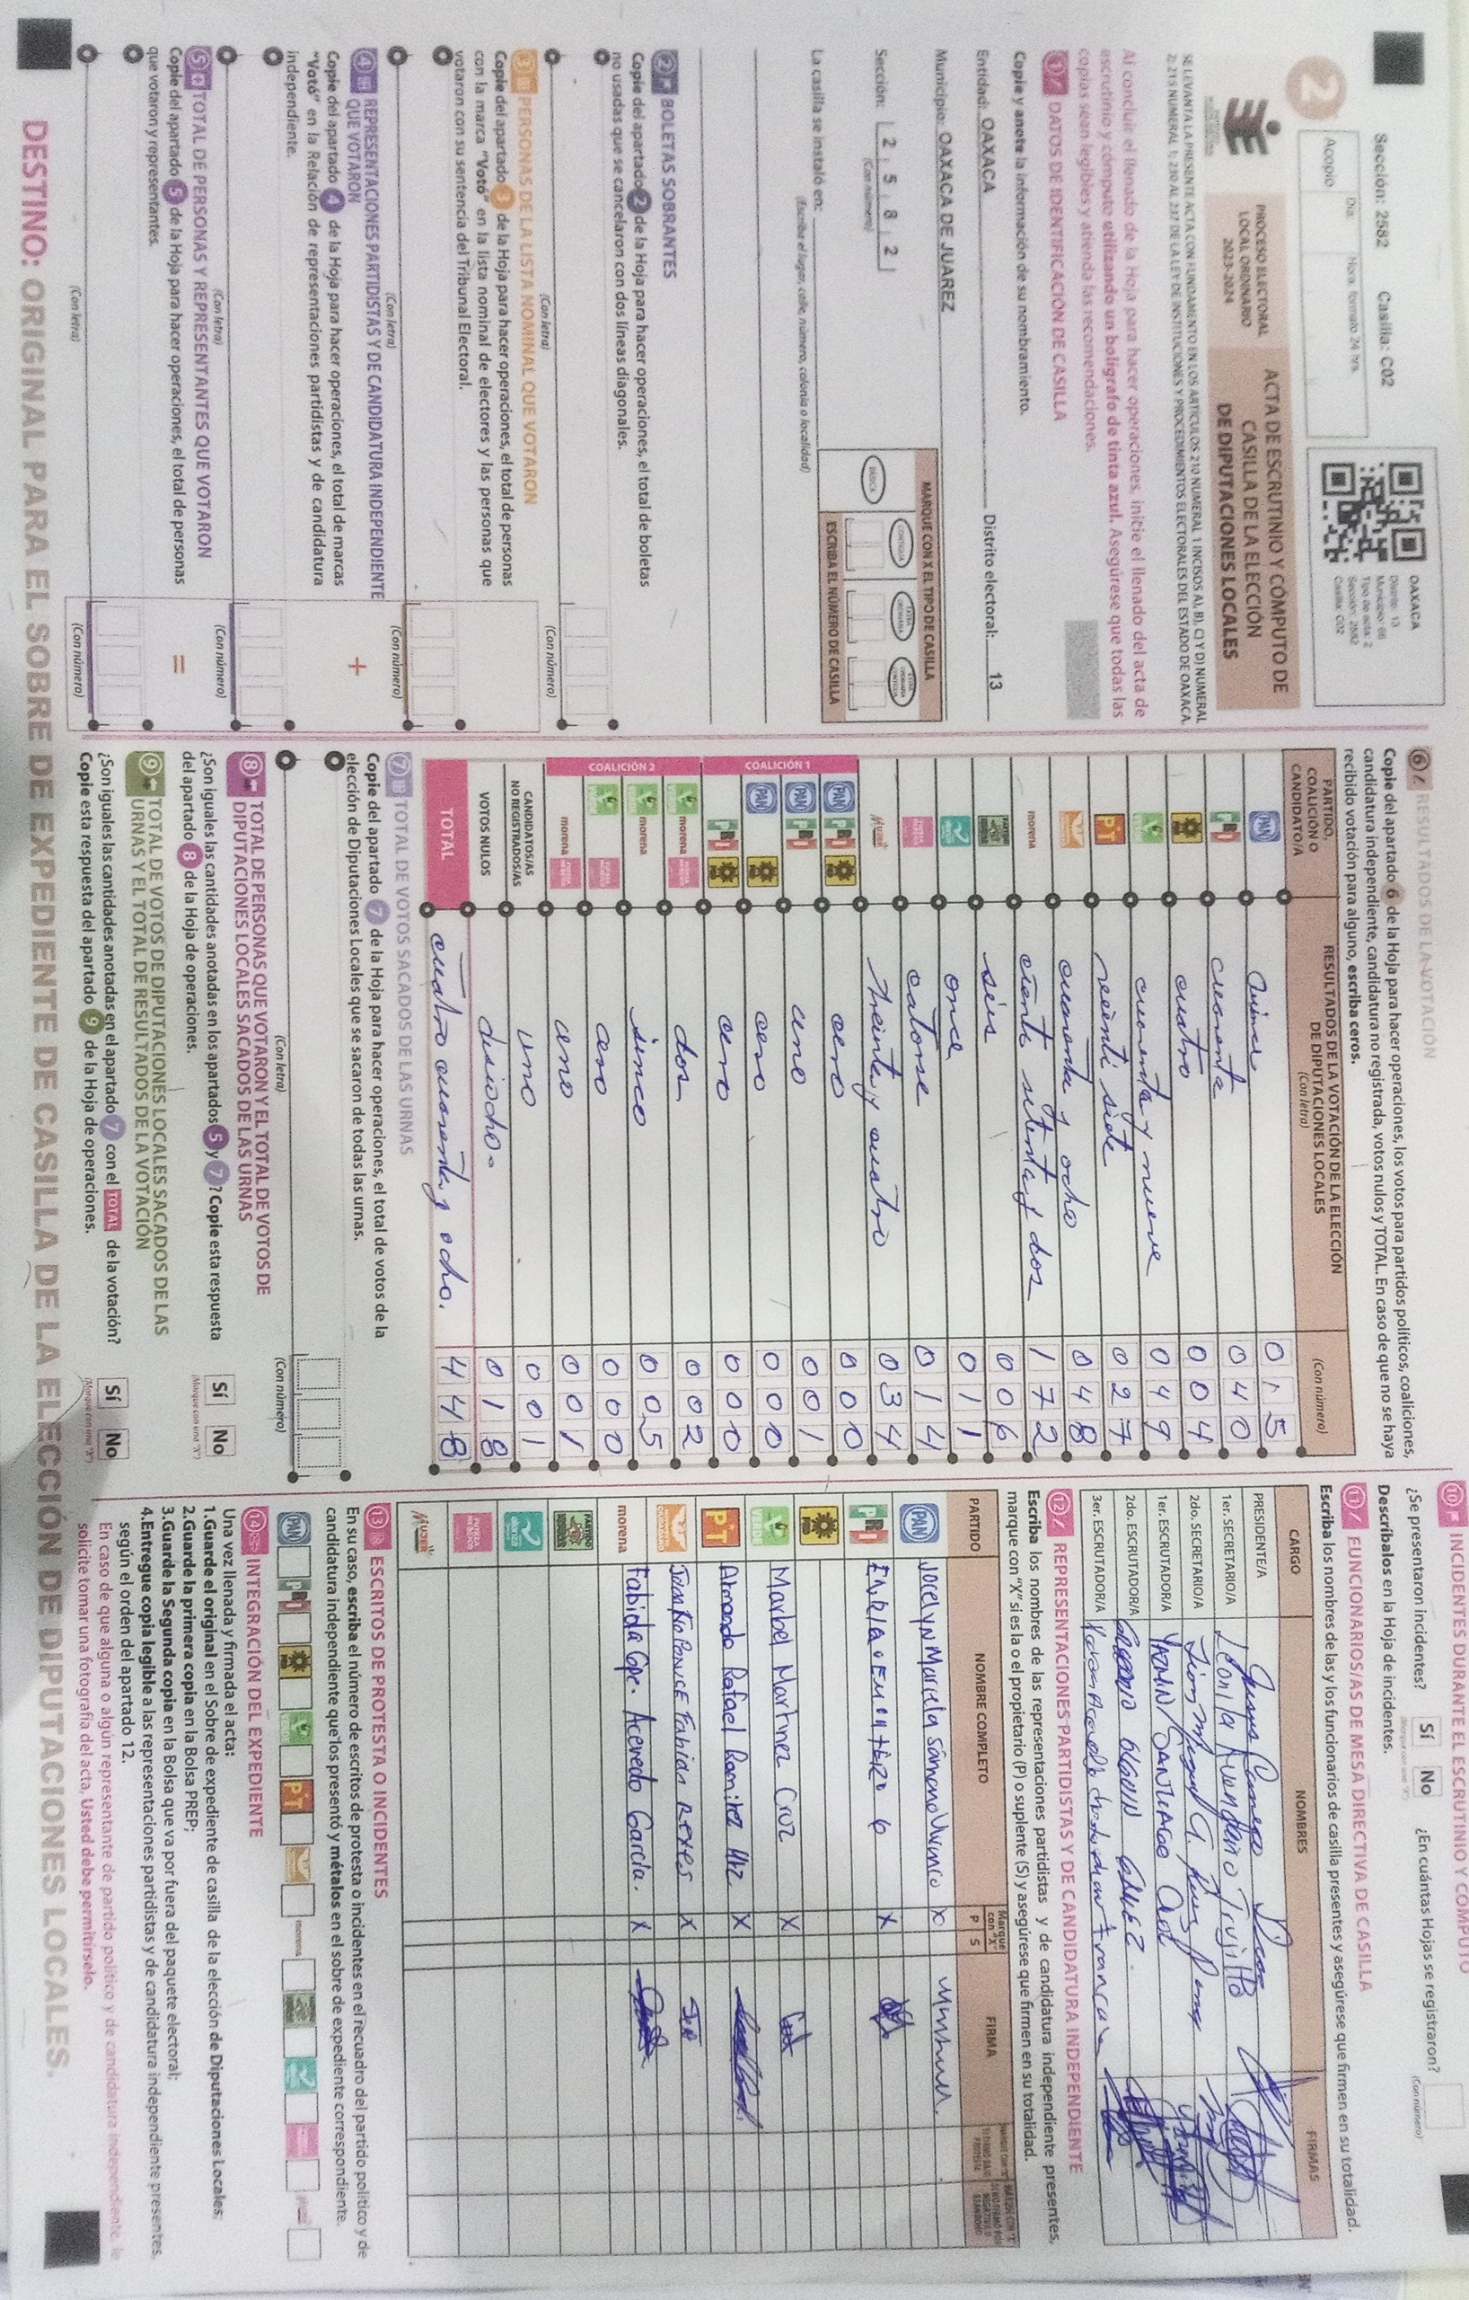 Sección: 2582 Casilla: C02
2
Acopio
Día:
Hora, formato 24 hrs.
OAXACA
Distrito: 13
Municipio: 66
Tipo de acta: 2
Sección: 2582
Casilla: C02
PROCESO ELECTORAL
LOCAL ORDINARIO
2023-2024
ACTA DE ESCRUTINIO Y CÓMPUTO DE
CASILLA DE LA ELECCIÓN
DE DIPUTACIONES LOCALES
SE LEVANTA LA PRESENTE ACTA CON FUNDAMENTO EN LOS ARTÍCULOS 210 NUMERAL 1 INCISOS A), B), C) Y D) NUMERAL
2; 215 NUMERAL 1; 230 AL 237 DE LA LEY DE INSTITUCIONES Y PROCEDIMIENTOS ELECTORALES DEL ESTADO DE OAXACA.
Al concluir el llenado de la Hoja para hacer operaciones, inicie el llenado del acta de
escrutinio y cómputo utilizando un bolígrafo de tinta azul. Asegúrese que todas las
copias sean legibles y atienda las recomendaciones.
1 DATOS DE IDENTIFICACIÓN DE CASILLA
Copie y anote la información de su nombramiento.
Entidad: OAXACA Distrito electoral: 13
Municipio: OAXACA DE JUAREZ
Sección: 2 5 8 2
(Con número)
MARQUE CON X EL TIPO DE CASILLA
BÁSICA
CONTIGUA
EXTRAORDINARIA
EXTRAORDINARIA CONTIGUA
ESCRIBA EL NÚMERO DE CASILLA
La casilla se instaló en:
(Escriba el lugar, calle, número, colonia o localidad)
2 BOLETAS SOBRANTES
Copie del apartado 2 de la Hoja para hacer operaciones, el total de boletas
no usadas que se cancelaron con dos líneas diagonales.
(Con letra) (Con número)
3 PERSONAS DE LA LISTA NOMINAL QUE VOTARON
Copie del apartado 3 de la Hoja para hacer operaciones, el total de personas
con la marca "Votó" en la lista nominal de electores y las personas que
votaron con su sentencia del Tribunal Electoral.
(Con letra) (Con número)
4 REPRESENTACIONES PARTIDISTAS Y DE CANDIDATURA INDEPENDIENTE
QUE VOTARON
Copie del apartado 4 de la Hoja para hacer operaciones, el total de marcas
"Votó" en la Relación de representaciones partidistas y de candidatura
independiente.
+
(Con letra) (Con número)
5 TOTAL DE PERSONAS Y REPRESENTANTES QUE VOTARON
Copie del apartado 5 de la Hoja para hacer operaciones, el total de personas
que votaron y representantes.
=
(Con letra) (Con número)
6 RESULTADOS DE LA VOTACIÓN
Copie del apartado 6 de la Hoja para hacer operaciones, los votos para partidos políticos, coaliciones,
candidatura independiente, candidatura no registrada, votos nulos y TOTAL. En caso de que no se haya
recibido votación para alguno, escriba ceros.
PARTIDO, COALICIÓN O CANDIDATO/A
RESULTADOS DE LA VOTACIÓN DE LA ELECCIÓN DE DIPUTACIONES LOCALES
(Con letra) (Con número)
PAN quince 015
PRI cuarenta 040
PRD cuatro 004
VERDE cuarenta y nueve 049
PT veinti siete 027
cuarenta y ocho 048
morena ciento setenta y dos 172
seis 006
once 011
catorse 014
MUJER treinta y cuatro 034
COALICIÓN 1
PAN PRI PRD cero 000
PAN PRI uno 001
PAN PRD cero 000
PRI PRD cero 000
COALICIÓN 2
VERDE morena dos 002
VERDE morena sinco 005
VERDE cero 000
morena uno 001
CANDIDATOS/AS
NO REGISTRADOS/AS uno 001
VOTOS NULOS disiocho. 018
TOTAL cuatro cuarenta y ocho. 448
7 TOTAL DE VOTOS SACADOS DE LAS URNAS
Copie del apartado 7 de la Hoja para hacer operaciones, el total de votos de la
elección de Diputaciones Locales que se sacaron de todas las urnas.
(Con letra) (Con número)
8 TOTAL DE PERSONAS QUE VOTARON Y EL TOTAL DE VOTOS DE
DIPUTACIONES LOCALES SACADOS DE LAS URNAS
¿Son iguales las cantidades anotadas en los apartados 5 y 7? Copie esta respuesta
del apartado 8 de la Hoja de operaciones.
Sí No
(Marque con una "X")
9 TOTAL DE VOTOS DE DIPUTACIONES LOCALES SACADOS DE LAS
URNAS Y EL TOTAL DE RESULTADOS DE LA VOTACIÓN
¿Son iguales las cantidades anotadas en el apartado 7 con el TOTAL de la votación?
Copie esta respuesta del apartado 9 de la Hoja de operaciones.
Sí No
(Marque con una "X")
10 INCIDENTES DURANTE EL ESCRUTINIO Y CÓMPUTO
¿Se presentaron incidentes? Sí No ¿En cuántas Hojas se registraron?
(Marque con una "X") (Con número)
Descríbalos en la Hoja de incidentes.
11 FUNCIONARIOS/AS DE MESA DIRECTIVA DE CASILLA
Escriba los nombres de las y los funcionarios de casilla presentes y asegúrese que firmen en su totalidad.
CARGO NOMBRES FIRMAS
PRESIDENTE/A
1er. SECRETARIO/A Leonila Avendaño Trujillo
2do. SECRETARIO/A
1er. ESCRUTADOR/A YAZMIN SANTIAGO
2do. ESCRUTADOR/A
3er. ESCRUTADOR/A
12 REPRESENTACIONES PARTIDISTAS Y DE CANDIDATURA INDEPENDIENTE
Escriba los nombres de las representaciones partidistas y de candidatura independiente presentes,
marque con "X" si es la o el propietario (P) o suplente (S) y asegúrese que firmen en su totalidad.
PARTIDO NOMBRE COMPLETO Marque con "X" P S FIRMA
PAN Jocelyn Mariela X
PRI X
PRD
VERDE Maybel Martinez Cruz X
PT Armando Rafael Ramirez Hdz X
Juan Rio Ponce Fabian Reyes X
morena Fabiola Gpe. Acevedo Garcia. X
MUJER
13 ESCRITOS DE PROTESTA O INCIDENTES
En su caso, escriba el número de escritos de protesta o incidentes en el recuadro del partido político y de
candidatura independiente que los presentó y métalos en el sobre de expediente correspondiente.
PAN PRI PRD VERDE PT morena
14 INTEGRACIÓN DEL EXPEDIENTE
Una vez llenada y firmada el acta:
1.Guarde el original en el Sobre de expediente de casilla de la elección de Diputaciones Locales;
2.Guarde la primera copia en la Bolsa PREP;
3.Guarde la Segunda copia en la Bolsa que va por fuera del paquete electoral;
4.Entregue copia legible a las representaciones partidistas y de candidatura independiente presentes,
según el orden del apartado 12.
En caso de que alguna o algún representante de partido político y de candidatura independiente, le
solicite tomar una fotografía del acta, Usted debe permitírselo.
DESTINO: ORIGINAL PARA EL SOBRE DE EXPEDIENTE DE CASILLA DE LA ELECCIÓN DE DIPUTACIONES LOCALES.